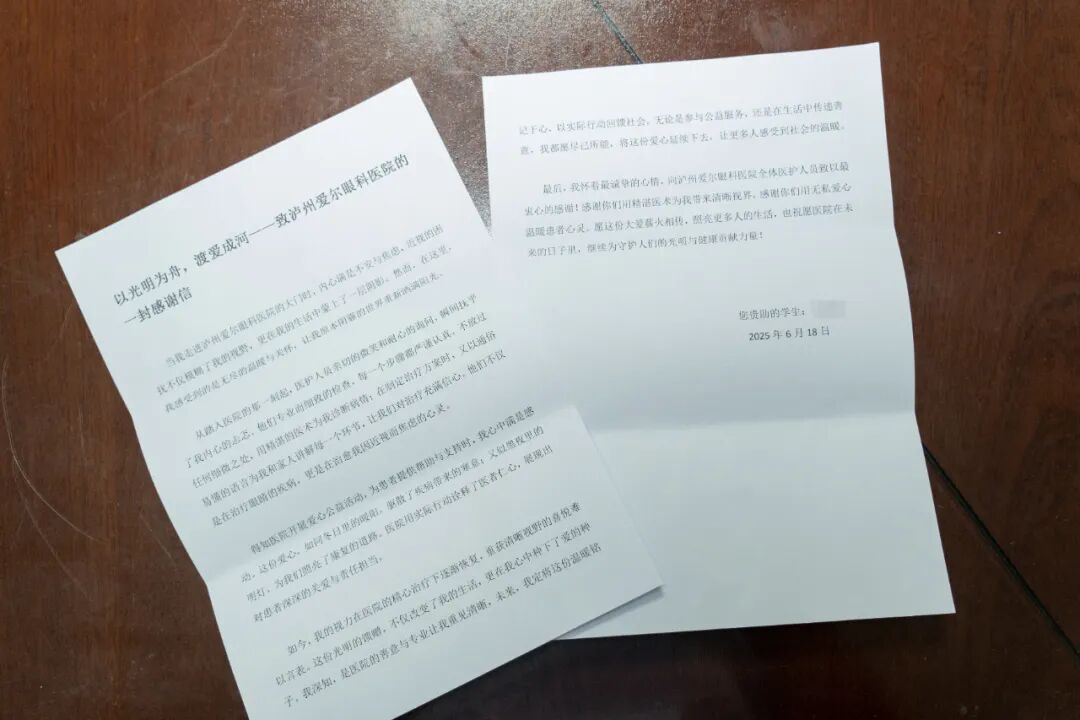 以光明为舟，渡爱成河——致泸州爱尔眼科医院的
一封感谢信
当我走进泸州爱尔眼科医院的大门时，内心满是不安与焦虑，近视的困
扰不仅模糊了我的视野，更在我的生活中蒙上了一层阴影。然而，在这里，
我感受到的是无尽的温暖与关怀，让我原本阴霾的世界重新洒满阳光。
从踏入医院的那一刻起，医护人员亲切的微笑和耐心的询问，瞬间抚平
了我内心的忐忑。他们专业而细致的检查，每一个步骤都严谨认真，不放过
任何细微之处，用精湛的医术为我诊断病情；在制定治疗方案时，又以通俗
易懂的语言为我和家人讲解每一个环节，让我们对治疗充满信心。他们不仅
是在治疗眼睛的疾病，更是在治愈我因近视而焦虑的心灵。
得知医院开展爱心公益活动，为患者提供帮助与支持时，我心中满是感
动。这份爱心，如同冬日里的暖阳，驱散了疾病带来的寒意；又似黑夜里的
明灯，为我们照亮了康复的道路。医院用实际行动诠释了医者仁心，展现出
对患者深深的关爱与责任担当。
如今，我的视力在医院的精心治疗下逐渐恢复，重获清晰视野的喜悦难
以言表。这份光明的馈赠，不仅改变了我的生活，更在我心中种下了爱的种
子。我深知，是医院的善意与专业让我重见清晰，未来，我定将这份温暖铭
记于心，以实际行动回馈社会。无论是参与公益服务，还是在生活中传递善
意，我都愿尽己所能，将这份爱心延续下去，让更多人感受到社会的温暖。
最后，我怀着最诚挚的心情，向泸州爱尔眼科医院全体医护人员致以最
衷心的感谢！感谢你们用精湛医术为我带来清晰视界，感谢你们用无私爱心
温暖患者心灵。愿这份大爱薪火相传，照亮更多人的生活，也祝愿医院在未
来的日子里，继续为守护人们的光明与健康贡献力量！
您资助的学生：
2025 年 6 月 18 日